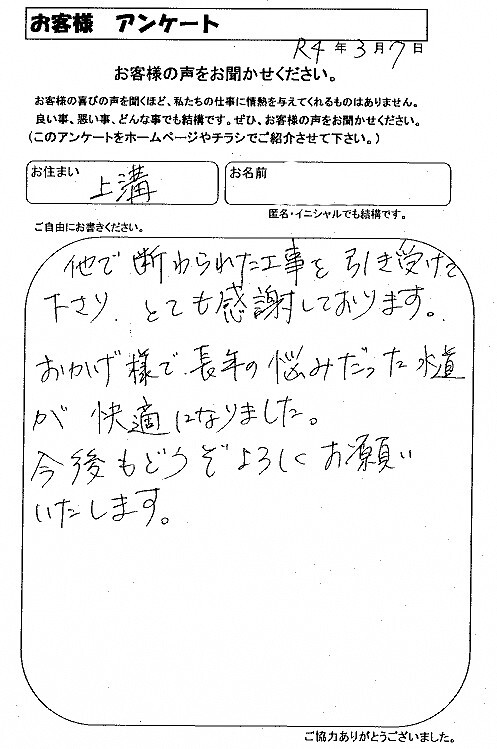 お客様 アンケート
R4年3月7日
お客様の声をお聞かせください。
お客様の喜びの声を聞くほど、私たちの仕事に情熱を与えてくれるものはありません。
良い事、悪い事、どんな事でも結構です。ぜひ、お客様の声をお聞かせください。
(このアンケートをホームページやチラシでご紹介させて下さい。)
お住まい 上溝 お名前
匿名・イニシャルでも結構です。
ご自由にお書きください。
他で断わられた工事を引き受けて
下さり、とても感謝しております。
おかげ様で、長年の悩みだった水道
が快適になりました。
今後もどうぞよろしくお願い
いたします。
ご協力ありがとうございました。